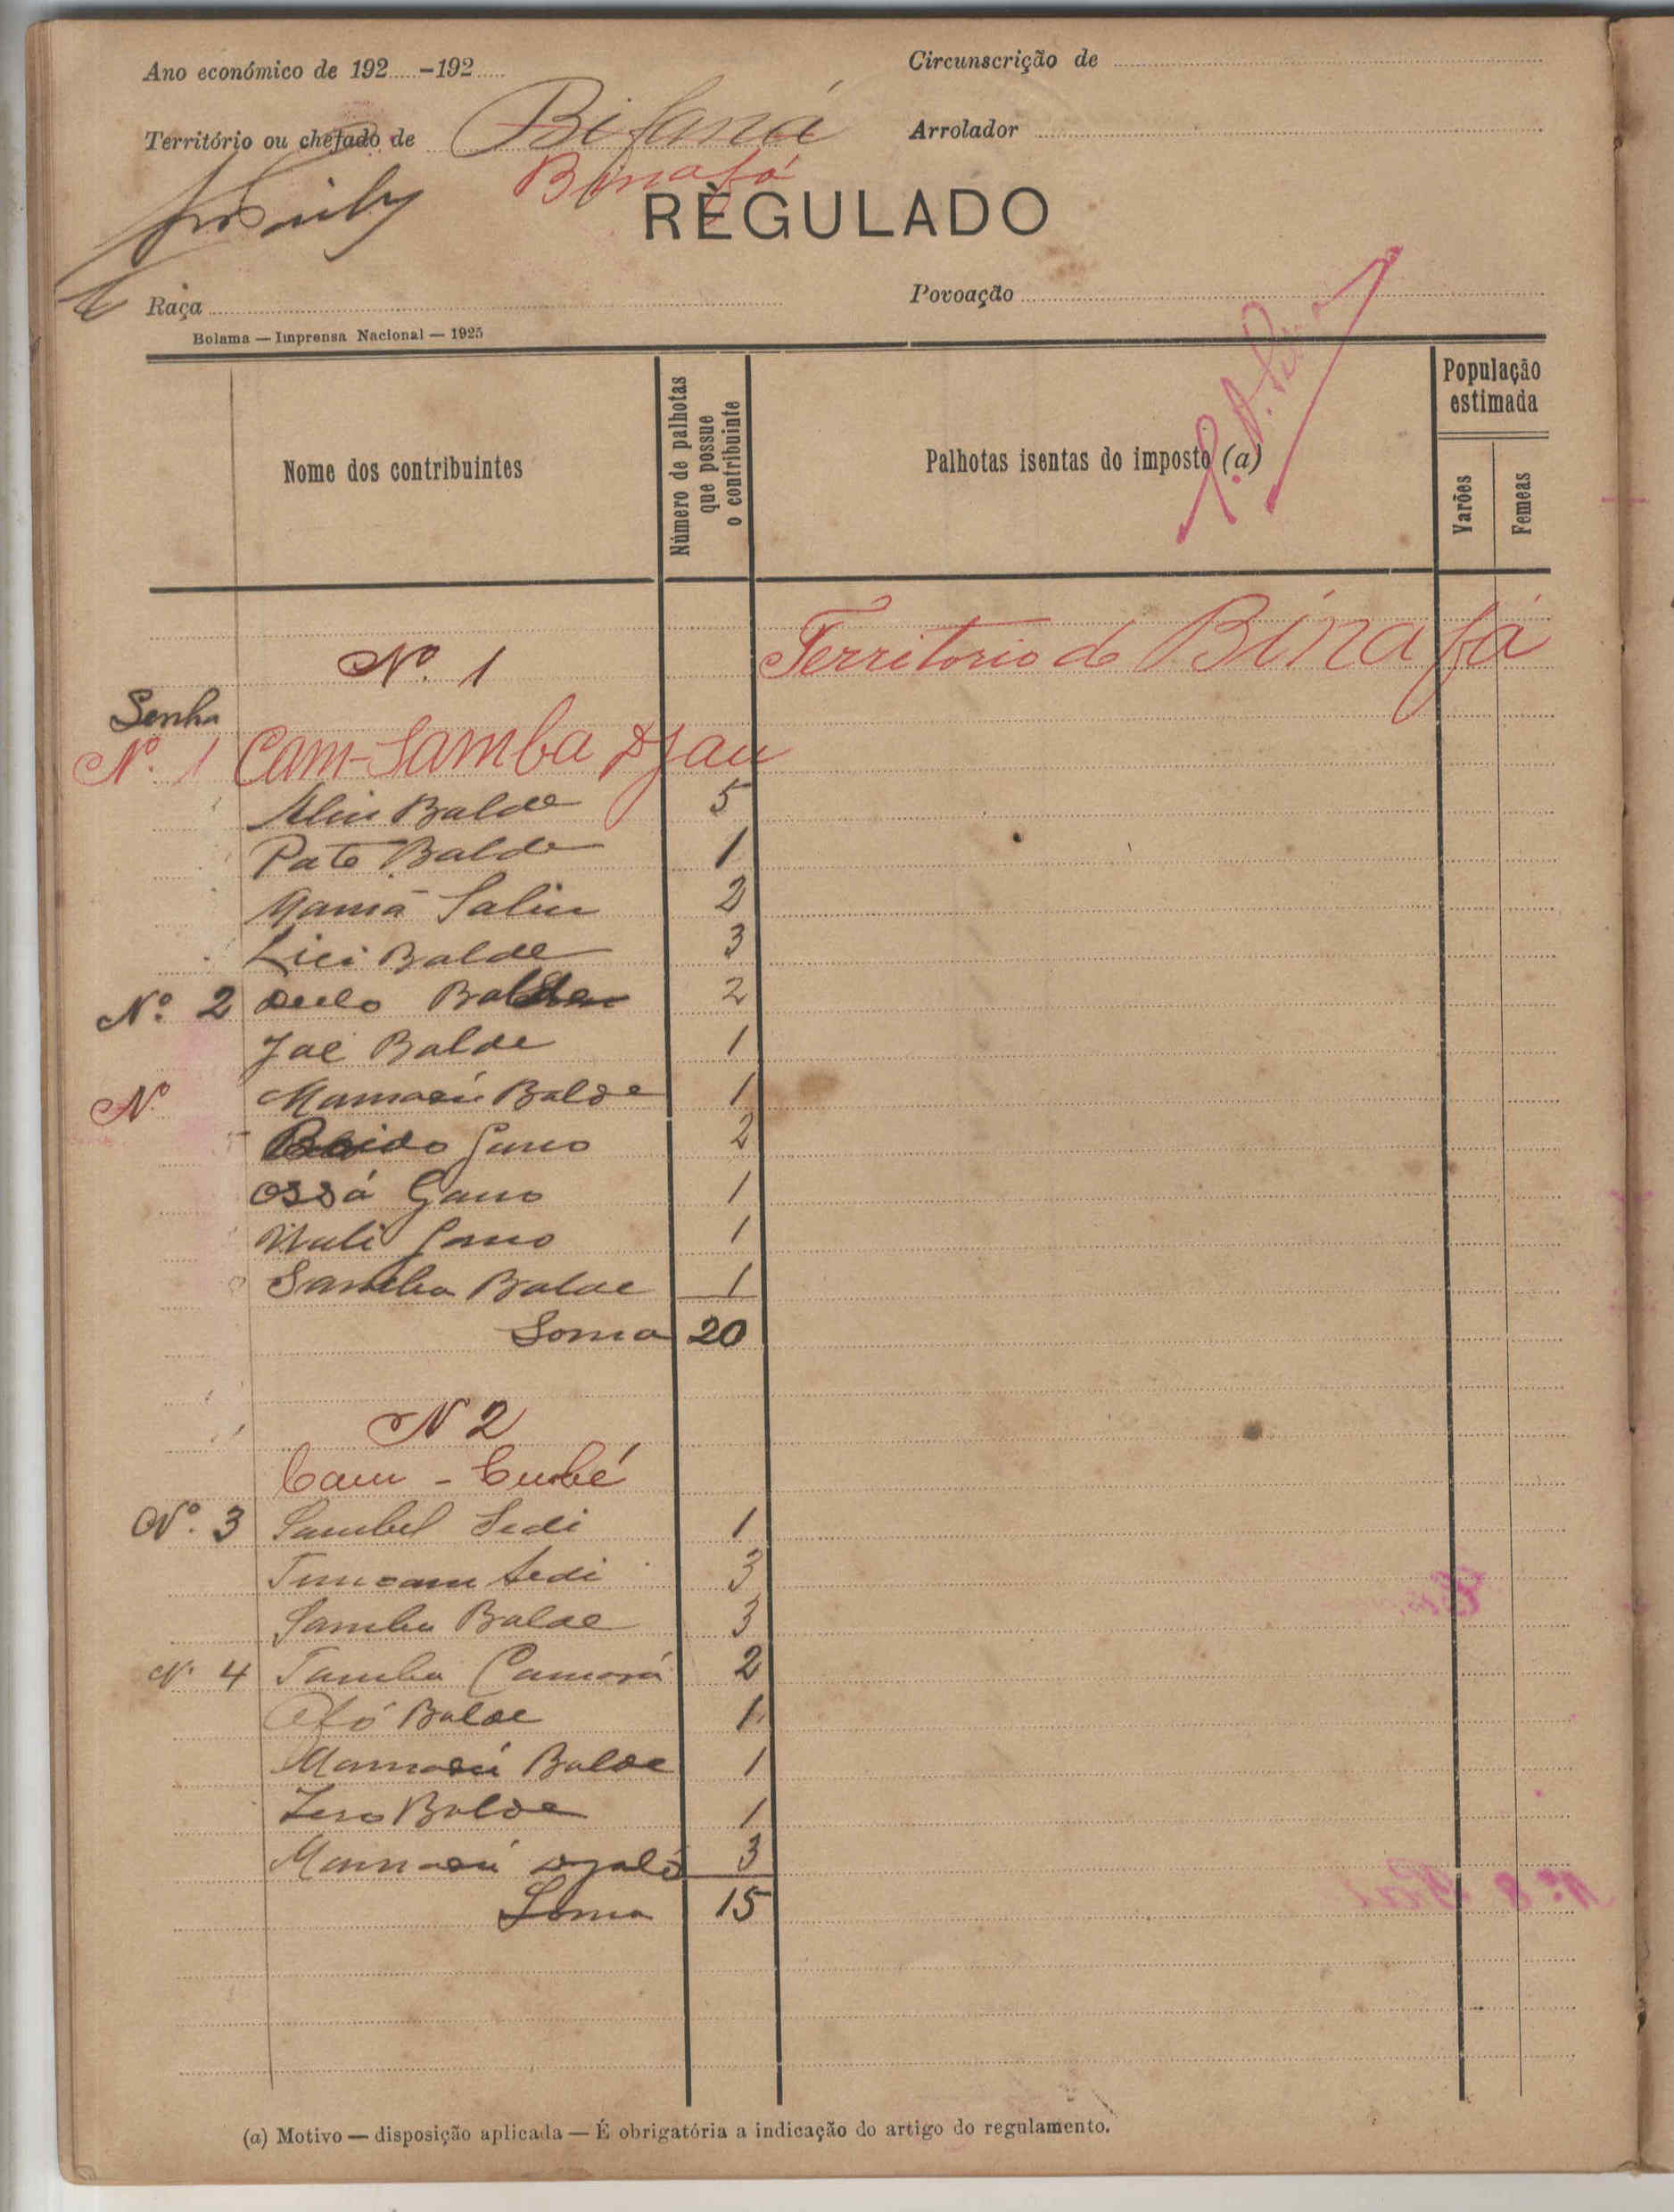 Ano económico de 192.....-192.....
Circunscrição de
Território ou chefado de Bifaná
Arrolador
Binafá
RÈGULADO
Raça
Povoação
Bolama — Imprensa Nacional — 1925
Nome dos contribuintes
Número de palhotas que possue o contribuinte
Palhotas isentas do imposto (a)
População estimada
Varões
Femeas
Nº. 1
Territorio de Binafá
Senha
Nº. 1 Cam-Samba Djau
Aliu Balde 5
Pate Balde 1
Mamá Saliu 2
Lici Balde 3
Nº. 2 Balde 2
Jae Balde 1
Nº Mamadú Balde 1
Gano 2
ossá Gano 1
Gano 1
Samba Balde 1
Soma 20
N 2
Cam - Cumbé
Nº. 3 Sambel Sedi 1
Sedi 3
Samba Balde 3
Nº. 4 Samba Camará 2
Balde 1
Mamadú Balde 1
Balde 1
Mamadú Djaló 3
Soma 15
(a) Motivo — disposição aplicada — É obrigatória a indicação do artigo do regulamento.